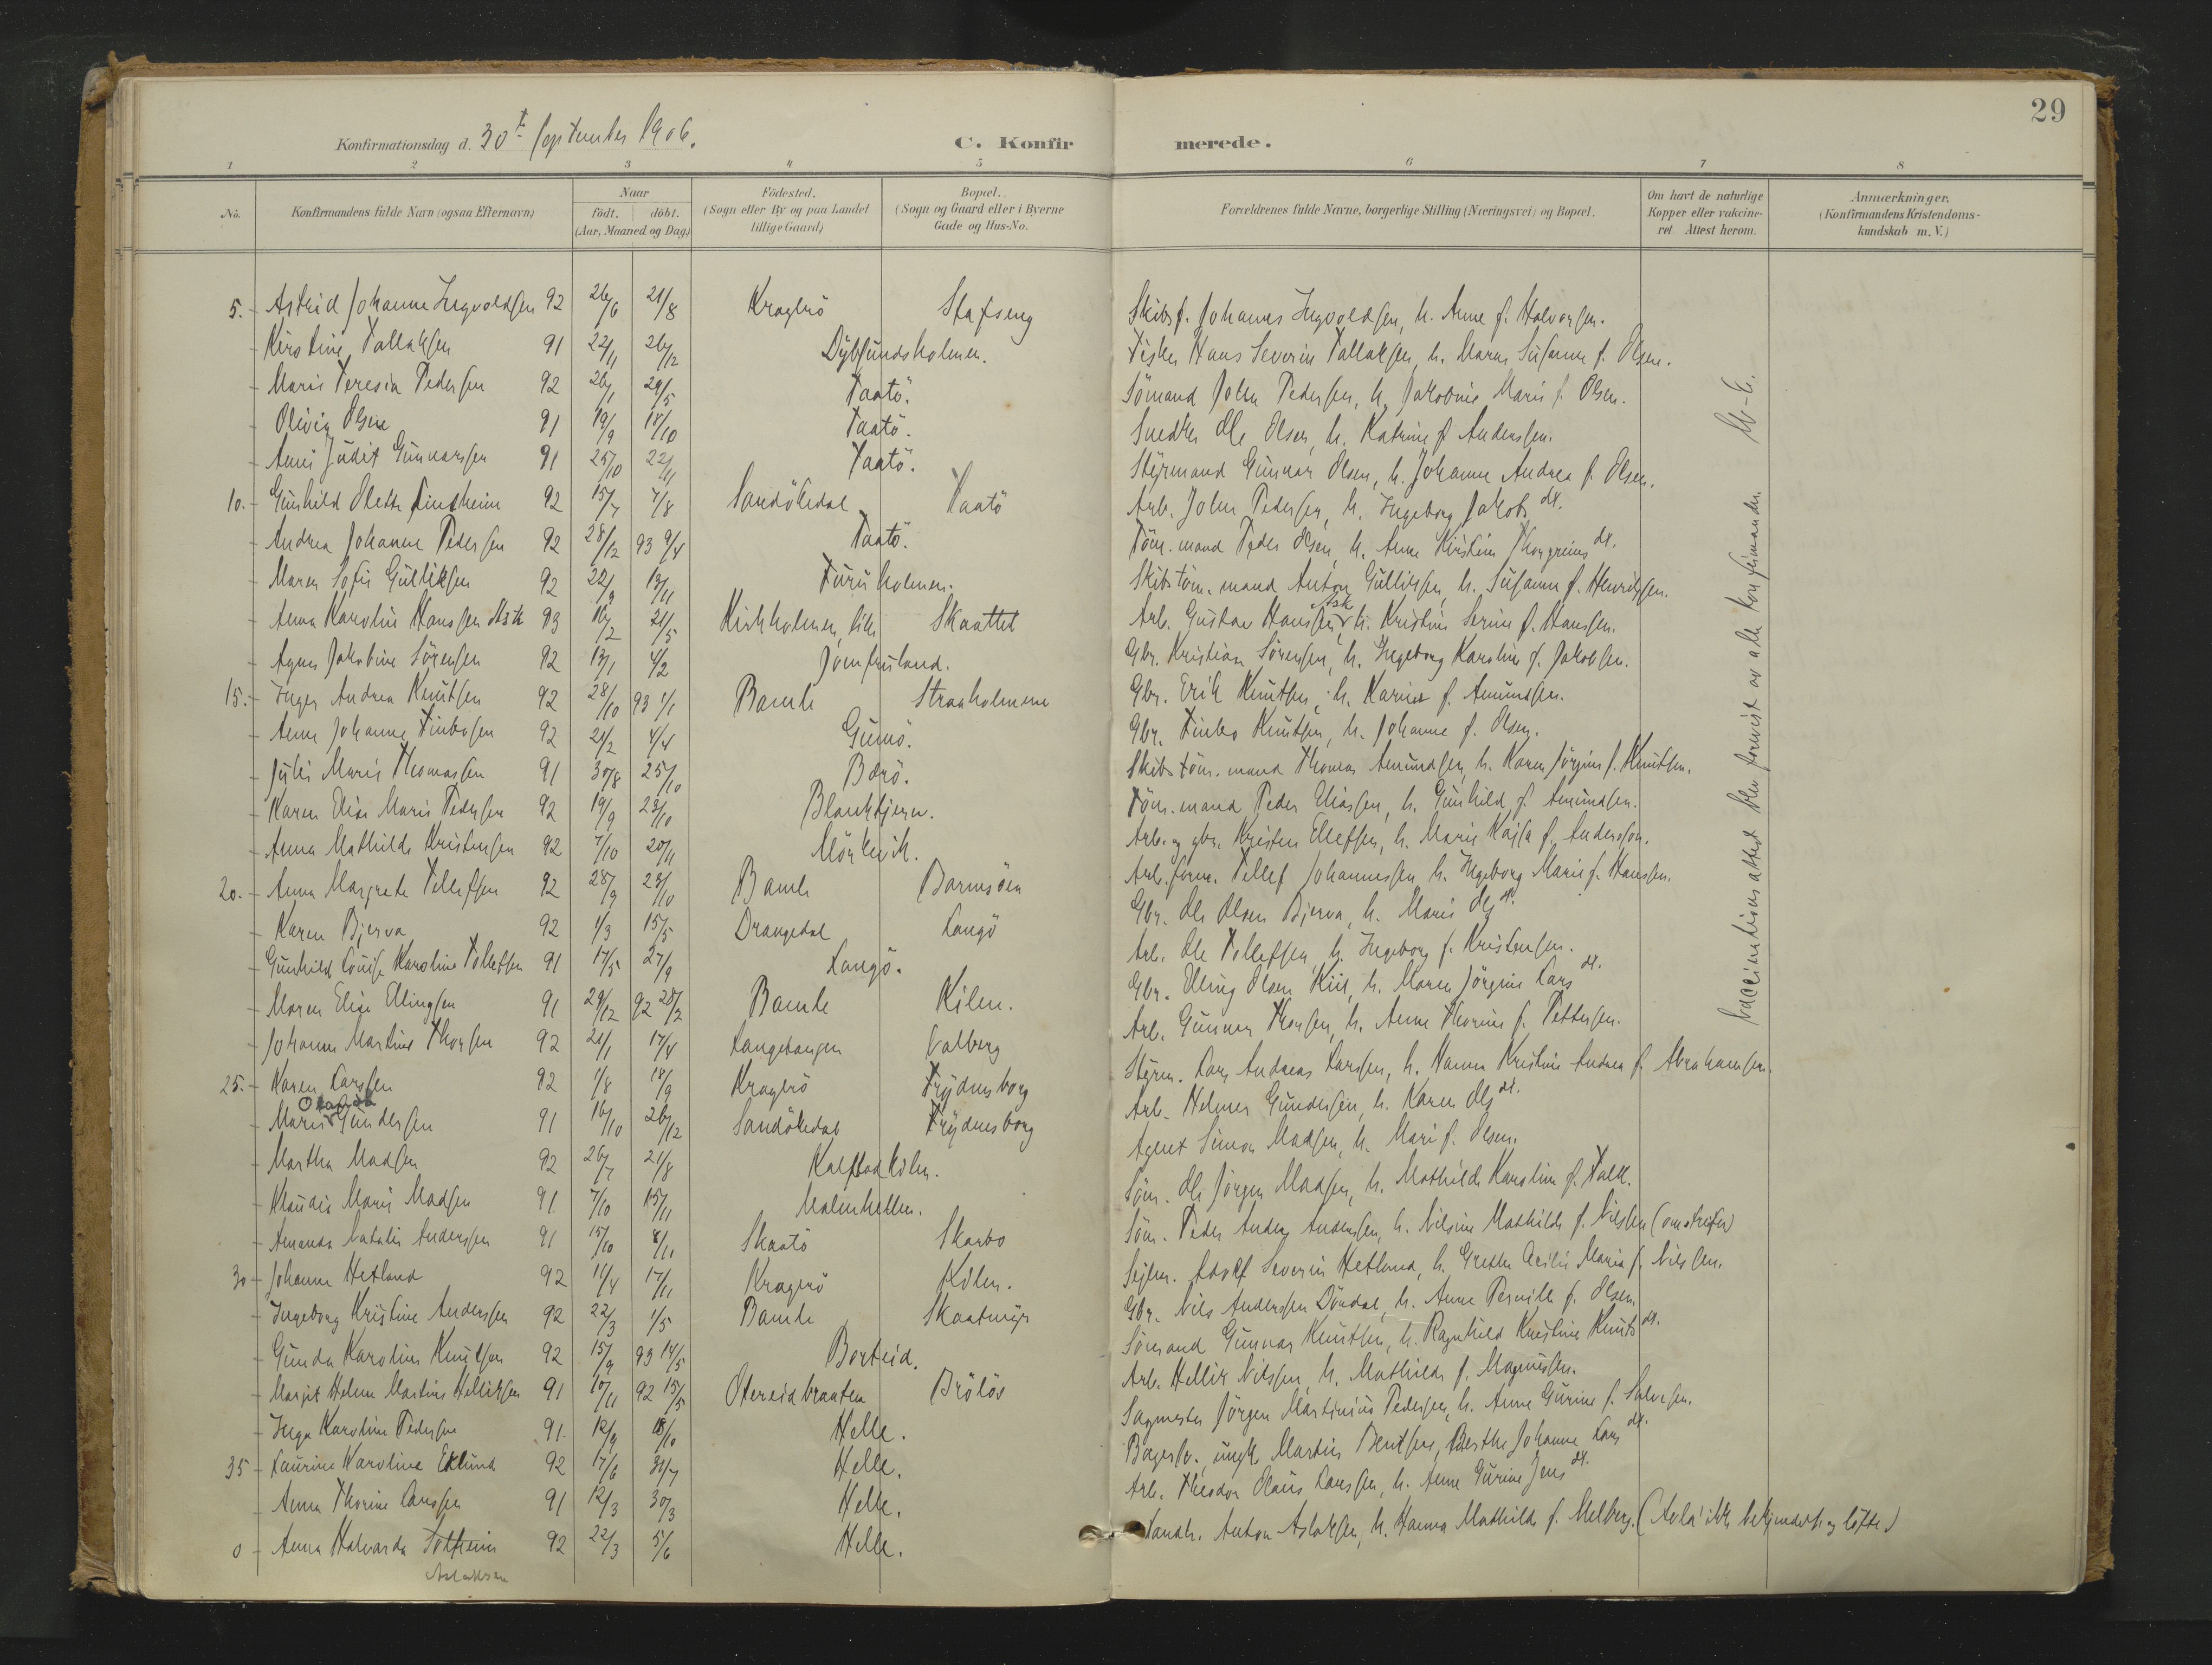 29
Konfirmationsdag d. 30t September 1906.
C. Konfirmerede.
1 2 3 4 5 6 7 8
No.
Konfirmandens fulde Navn (ogsaa Efternavn)
Naar
födt. döbt.
(Aar, Maaned og Dag)
Födested.
(Sogn eller By og paa Landet
tillige Gaard)
Bopæl.
(Sogn og Gaard eller i Byerne
Gade og Hus-No.
Forældrenes fulde Navne, borgerlige Stilling (Næringsvei) og Bopæl.
Om havt de naturlige
Kopper eller vakcine-
ret Attest herom.
Anmærkninger.
(Konfirmandens Kristendoms-
kundskab m. V.)
5. Astrid Johanne Ingvoldsen 92 26/6 21/8 Kragerö Stafseng Skibsf. Johannes Ingvoldsen, h. Anne f. Halvorsen.
Kirstine Tallaksen 91 22/11 26/12 Dybsundsholmen. Fisker Hans Severin Tallaksen, h. Maren Susanne f. Olsen.
Marie Teresia Pedersen 92 26/1 29/5 Taatö. Sömand John Pedersen, h. Jakobine Marie f. Olsen.
Olivia Olsen 91 19/9 18/10 Taatö. Snedker Ole Olsen, h. Katrine f. Anderssen.
Anni Judit Gunnarssen 91 25/10 22/11 Taatö. Styrmand Gunnar Olsen, h. Johanne Andrea f. Olsen.
10. Gunhild Olette 92 15/7 7/8 Sandökedal Taatö Arb. John Pedersen, h. Ingeborg Jakobs dt.
Andrea Johanne Pedersen 92 28/12 93 9/4 Taatö. Töm.mand Peder Olsen, h. Anne Kirstine dt.
Maren Sofie Gulliksen 92 22/9 13/11 Furuholmen. Skibstöm.mand Anton Gulliksen, h. Susanne f. Henriksen.
Anna Karoline Hanssen Ask 93 16/2 21/5 Kirkholmen, Skaattet Arb. Gustav Hanssen Ask, h. Kristine Serine f. Hansen.
Agnes Jakobine Sörensen 92 13/1 4/2 Jomfruland. Gbr. Kristian Sörensen, h. Ingeborg Karoline f. Jakobsen.
15. Inger Andrea Knutsen 92 28/10 93 1/1 Bamle Straaholmene Gbr. Erik Knutsen, h. Karine f. Amundsen.
Anne Johanne Finbosen 92 21/2 4/4 Gumö. Gbr. Finbo Knutsen, h. Johanne f. Olsen.
Julie Marie Thomassen 91 30/8 25/10 Bærö. Skibstöm.mand Thomas Amundsen, h. Karen Jörgine f. Knutsen.
Karen Elise Marie Pedersen 92 19/9 23/10 Blankkjern. Töm.mand Peder Eliassen, h. Gunhild f. Amundsen.
Anna Mathilde Kristensen 92 7/10 20/11 Mörkevik. Arb. og gbr. Kristen Ellefsen, h. Marie Kajsa f. Andersson.
20. Anna Margrete Tellefsen 92 28/9 23/10 Bamle Barmsöen Arb.form. Tellef Johannessen h. Ingeborg Marie f. Hanssen.
Karen Bjerva 92 1/3 15/5 Drangedal Langö Gbr. Ole Olsen Bjerva, h. Marie Ols dt.
Gunhild Louise Karoline Tollefsen 91 17/5 27/9 Langö. Arb. Ole Tollefsen, h. Ingeborg f. Kristensen.
Maren Elise Ellingsen 91 29/12 92 28/2 Bamle Kilen. Gbr. Elling Olsen Kiil, h. Maren Jörgine Lars dt.
Johanne Martine Thorsen 92 21/1 17/4 Langetangen Valberg Arb. Gunnar Thorsen, h. Anne Thorine f. Pettersen.
25. Karen Larssen 92 1/8 18/9 Kragerö Frydensborg Styrm. Lars Andreas Larssen, h. Hanna Kristine Andrea f. Abrahamsen.
Marie Gundersen 91 16/10 26/12 Sandökedal Frydensborg Arb. Helmer Gundersen, h. Karen Ols dt.
Martha Madsen 92 26/7 21/8 Kalstadkilen. Agent Simon Madsen, h. Mari f. Olsen.
Klaudia Marie Madsen 91 7/10 15/11 Malmhellen. Söm. Ole Jörgen Madsen, h. Mathilde Karoline f. Falk.
Amanda Natalie Anderssen 91 15/10 8/11 Skaatö Skarbo Söm. Peder Andreas Anderssen, h. Nilsine Mathilde f. Nilsen
30 Johanne Hetland 92 11/4 17/11 Kragerö Kilen. Adolf Severin Hetland, h. Grethe Maria f. Nilssen.
Ingeborg Kristine Anderssen 92 22/3 1/5 Bamle Skaatmyr Gbr. Nils Anderssen Döndal, h. Anne Pernille f. Olsen.
Gunda Karoline Knutsen 92 15/9 93 14/5 Borteid. Sömand Gunnar Knutsen, h. Ragnhild Kristine Knuts dt.
Margit Helene Martine Helliksen 91 10/11 92 15/5 Otereidbraaten Brölös Arb. Hellik Nilssen, h. Mathilde f. Magnussen.
Inga Karoline Pedersen 91. 12/9 18/10 Helle. Sagmester Jörgen Martinius Pedersen, h. Anne Gurine f. Halvorsen.
35 Laurine Karoline Eklund 92 17/6 31/7 Helle. Bagersv., ungk. Martin Bentsen, Berthe Johanne Lars dt.
Anna Thorine Larssen 91 12/3 30/3 Helle. Arb. Theodor Olaus Larssen, h. Anne Gurine Jens dt.
0 Anna Halvarda Solheim 92 22/3 5/6 Helle. Anton Aslaksen, h. Hanna Mathilde f. Melberg. (Avla ikke bekjendelse og löfte)
Aslaksen
Vaccinationsattest blev forevist av alle konfirmander.